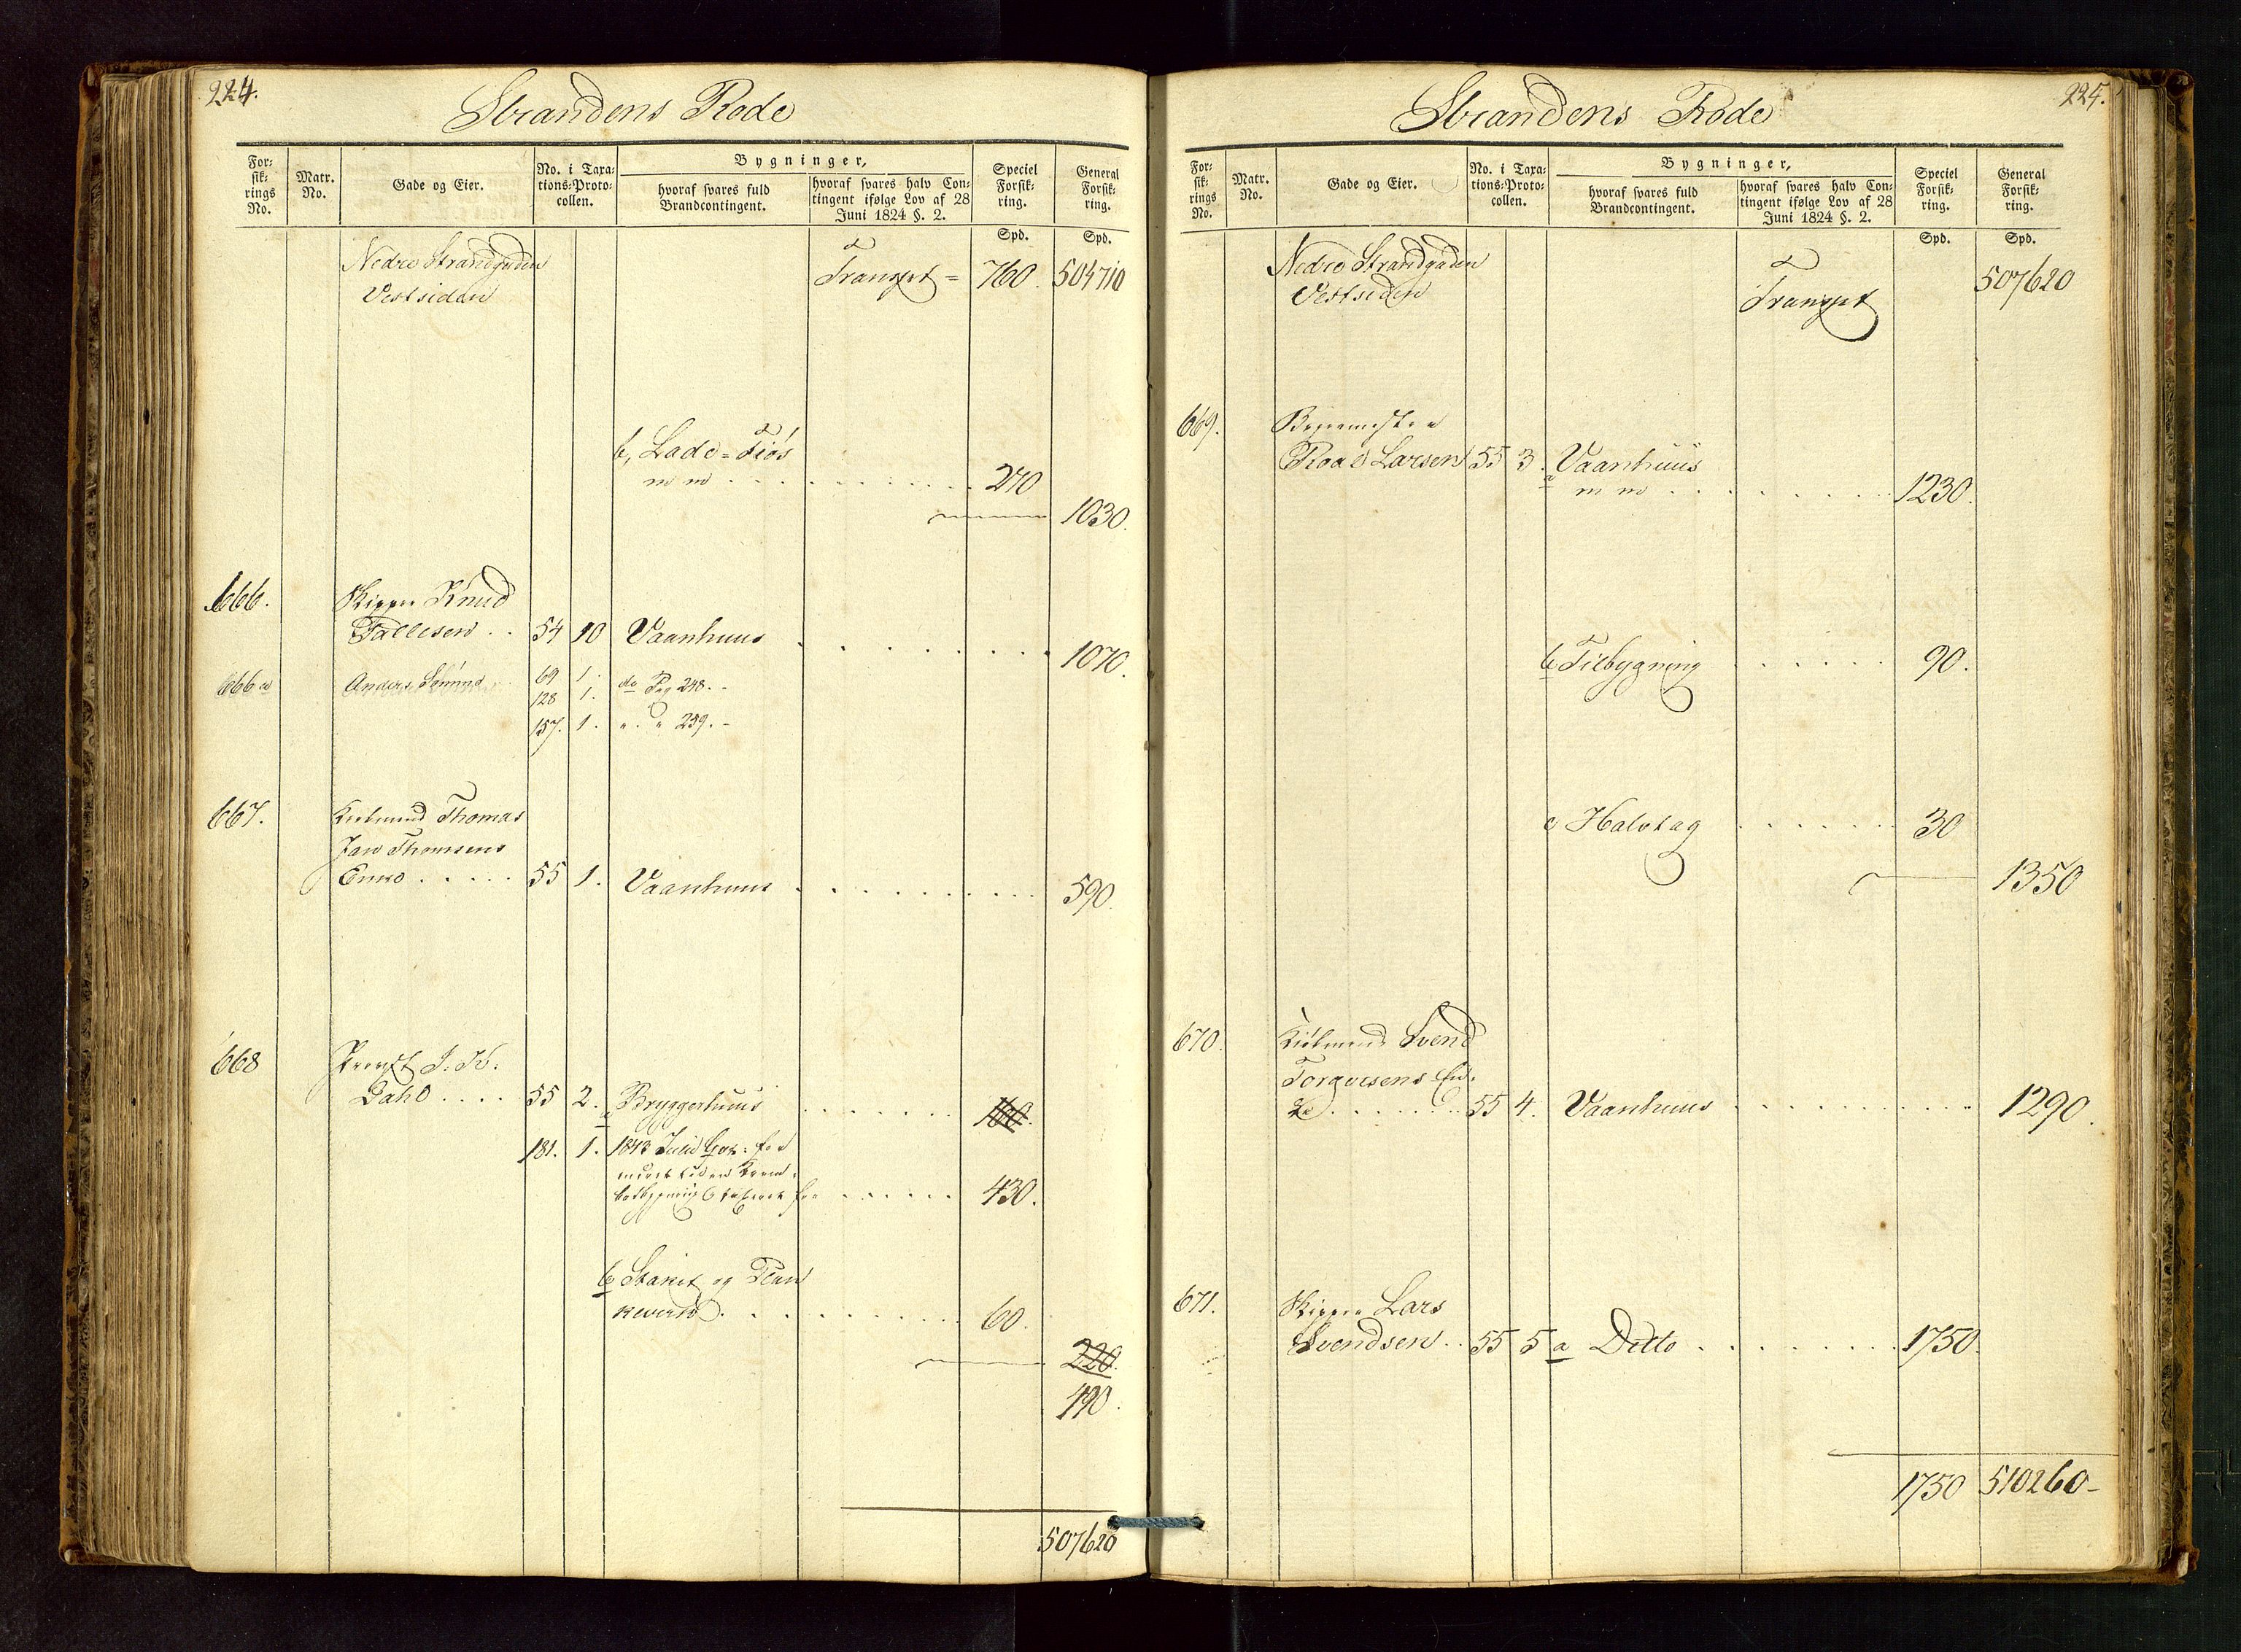 224.
Strandens Rode
For=
sik=
rings
No.
Matr.
No.
Gade og Eier.
No. i Taxa=
tions=Proto=
collen.
Bygninger,
hvoraf svares fuld
Brandcontingent.
hvoraf svares halv Con=
tingent ifølge Lov af 28
Juni 1824 §. 2.
Speciel
Forsik=
ring.
General
Forsik=
ring.
Spd.
Spd.
Nedre Strandgaden
Vestsiden
Transpt = 760. 504710
b, Lade = Fiøs
m m . . . . . . . . . . 270
1030.
666. Skipper Knud
Tallesen . . 54 10 Vaanhuus . . . . . . . 1070.
666 a Anders 69 1. do Pag 248. -
128 1.
157. 1. " . " 259. -
667. Kiøbmand Thomas
Jan Thomsens
Enke . . . . . 55 1. Vaanhuus . . . . . . . . . 590.
668 Provst J. K.
Dahl . . . . 55 2. a Bryggerhuus . . . . . . . 160.
181. 1. 1843 Julii for
430.
b Stakit og Plan
keverk . . . . . . . . . . 60.
220.
490.
507620
225.
Strandens Rode
For=
sik=
rings
No.
Matr.
No.
Gade og Eier.
No. i Taxa=
tions=Proto=
collen.
Bygninger,
hvoraf svares fuld
Brandcontingent.
hvoraf svares halv Con=
tingent ifølge Lov af 28
Juni 1824 §. 2.
Speciel
Forsik=
ring.
General
Forsik=
ring.
Spd.
Spd.
Nedre Strandgaden
Vestsiden
Transpt 507620
669.
Roal Larsen 55 3. a Vaanhuus
m m . . . . . . . . 1230.
b Tilbygning . . . . . . 90.
c Halvtag . . . . . . 30
1350
670. Kiøbmand Svend
Torgersens En=
ke . . . . . . . . 55 4. Vaanhuus . . . . . . . . . . 1290.
671. Skipper Lars
Svendsen . . 55 5 a Ditto . . . . . . . . 1750.
1750 510260 -